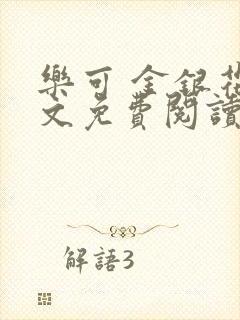 樂可 金銀花
文免費閱讀
解語3